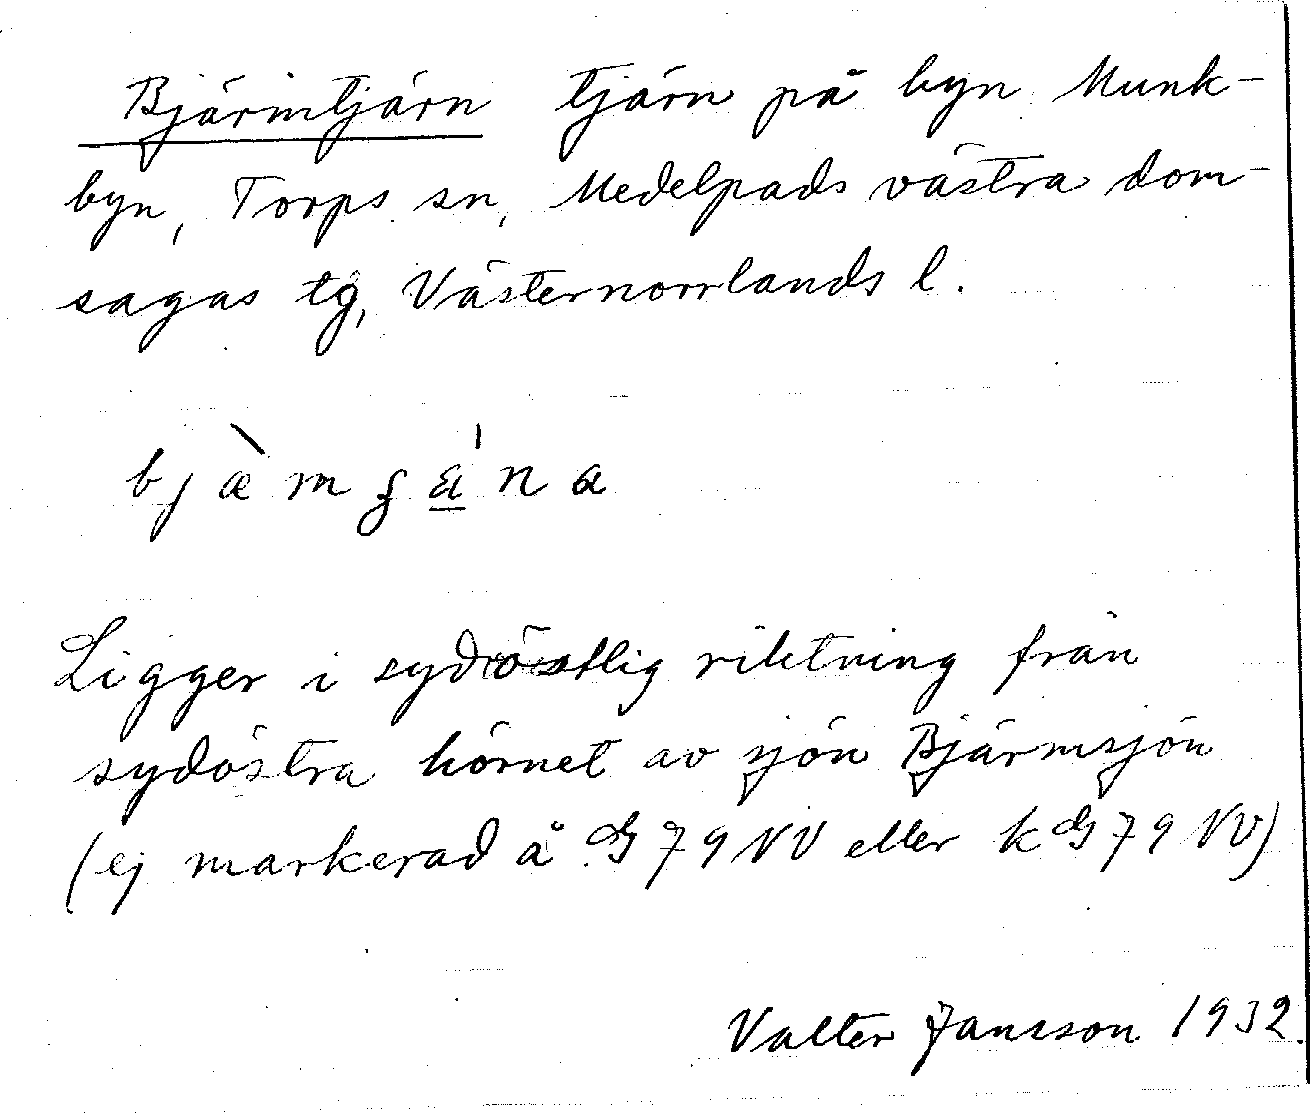 Bjärmtjärn tjärn på byn Munk-
byn, Torps sn, Medelpads västra dom-
sagas tg, Västernorrlands l.
Ligger i sydöstlig riktning från
sydöstra hörnet av sjön Bjärmsjön
(ej markerad å G 79 NV eller kG 79 NV)
Valter Jansson 1932.